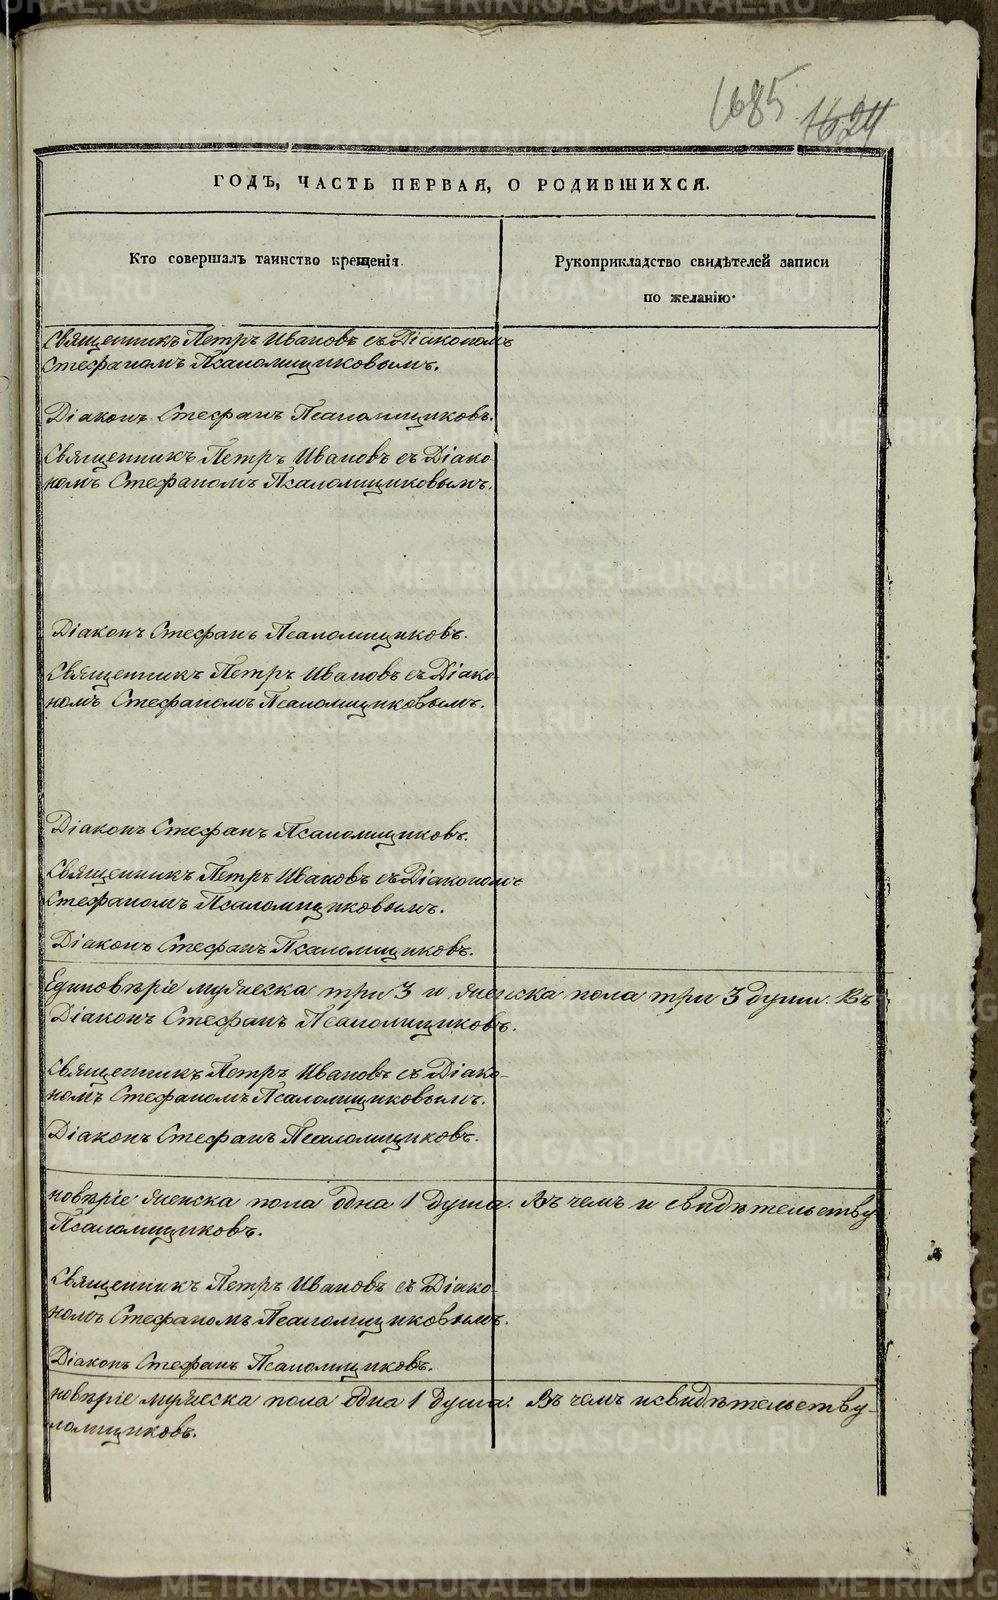 1685 1624
ГОДЪ, ЧАСТЬ ПЕРВАЯ, О РОДИВШИХСЯ.
Кто совершалъ таинство крещенія.
Рукоприкладство свидѣтелей записи
по желанію.
Священникъ Петръ Ивановъ съ Діакономъ
Стефаномъ Псаломщиковымъ.
Діаконъ Стефанъ Псаломщиковъ.
Священникъ Петръ Ивановъ съ Діако
номъ Стефаномъ Псаломщиковымъ.
Діаконъ Стефанъ Псаломщиковъ.
Священникъ Петръ Ивановъ съ Діако
номъ Стефаномъ Псаломщиковымъ.
Діаконъ Стефанъ Псаломщиковъ.
Священникъ Петръ Ивановъ съ Діакономъ
Стефаномъ Псаломщиковымъ.
Діаконъ Стефанъ Псаломщиковъ.
Единовѣріе мужеска три 3 и женска пола три 3 души. Въ
Діаконъ Стефанъ Псаломщиковъ.
Священникъ Петръ Ивановъ съ Діако-
номъ Стефаномъ Псаломщиковымъ.
Діаконъ Стефанъ Псаломщиковъ.
новѣріе женска пола одна 1 душа. Въ чемъ и свидѣтельству
Псаломщиковъ.
Священникъ Петръ Ивановъ съ Діако
номъ Стефаномъ Псаломщиковымъ.
Діаконъ Стефанъ Псаломщиковъ.
новѣріе мужеска пола одна 1 душа. Въ чемъ и свидѣтельству-
ломщиковъ.
METRIKI.GASO-URAL.RU